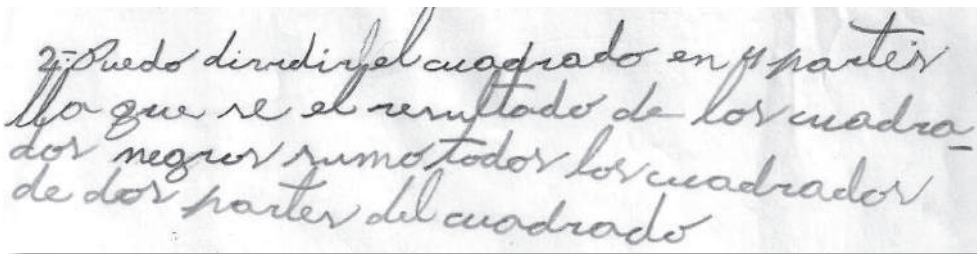 2- Puedo dividir el cuadrado en 4 partes
Ya que se el resultado de los cuadra-
dos negros sumo todos los cuadrados
de dos partes del cuadrado